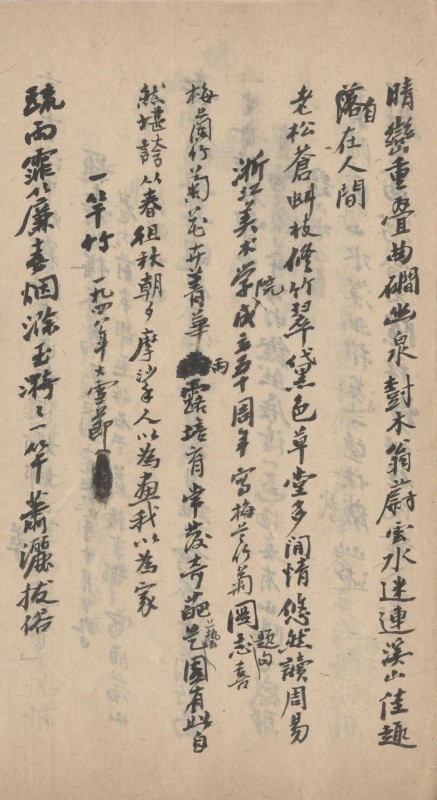 晴巒重疊曲磵幽泉尌木蓊蔚雲水迷連溪山佳趣
落自在人間
老松蒼虯枝修竹翠黛色草堂多閒情悠然讀周易
浙江美术学院成立五十周年寫梅兰竹菊圖題句志喜
梅蘭竹菊花卉菁華雨露培育常發奇葩藝園有此自
然堪誇以春徂秋朝夕摩挲人以為畫我以為家
一竿竹 一九四八年大雪節
疏雨霏〻廉烟滌玉漪〻一竿蕭灑拔俗